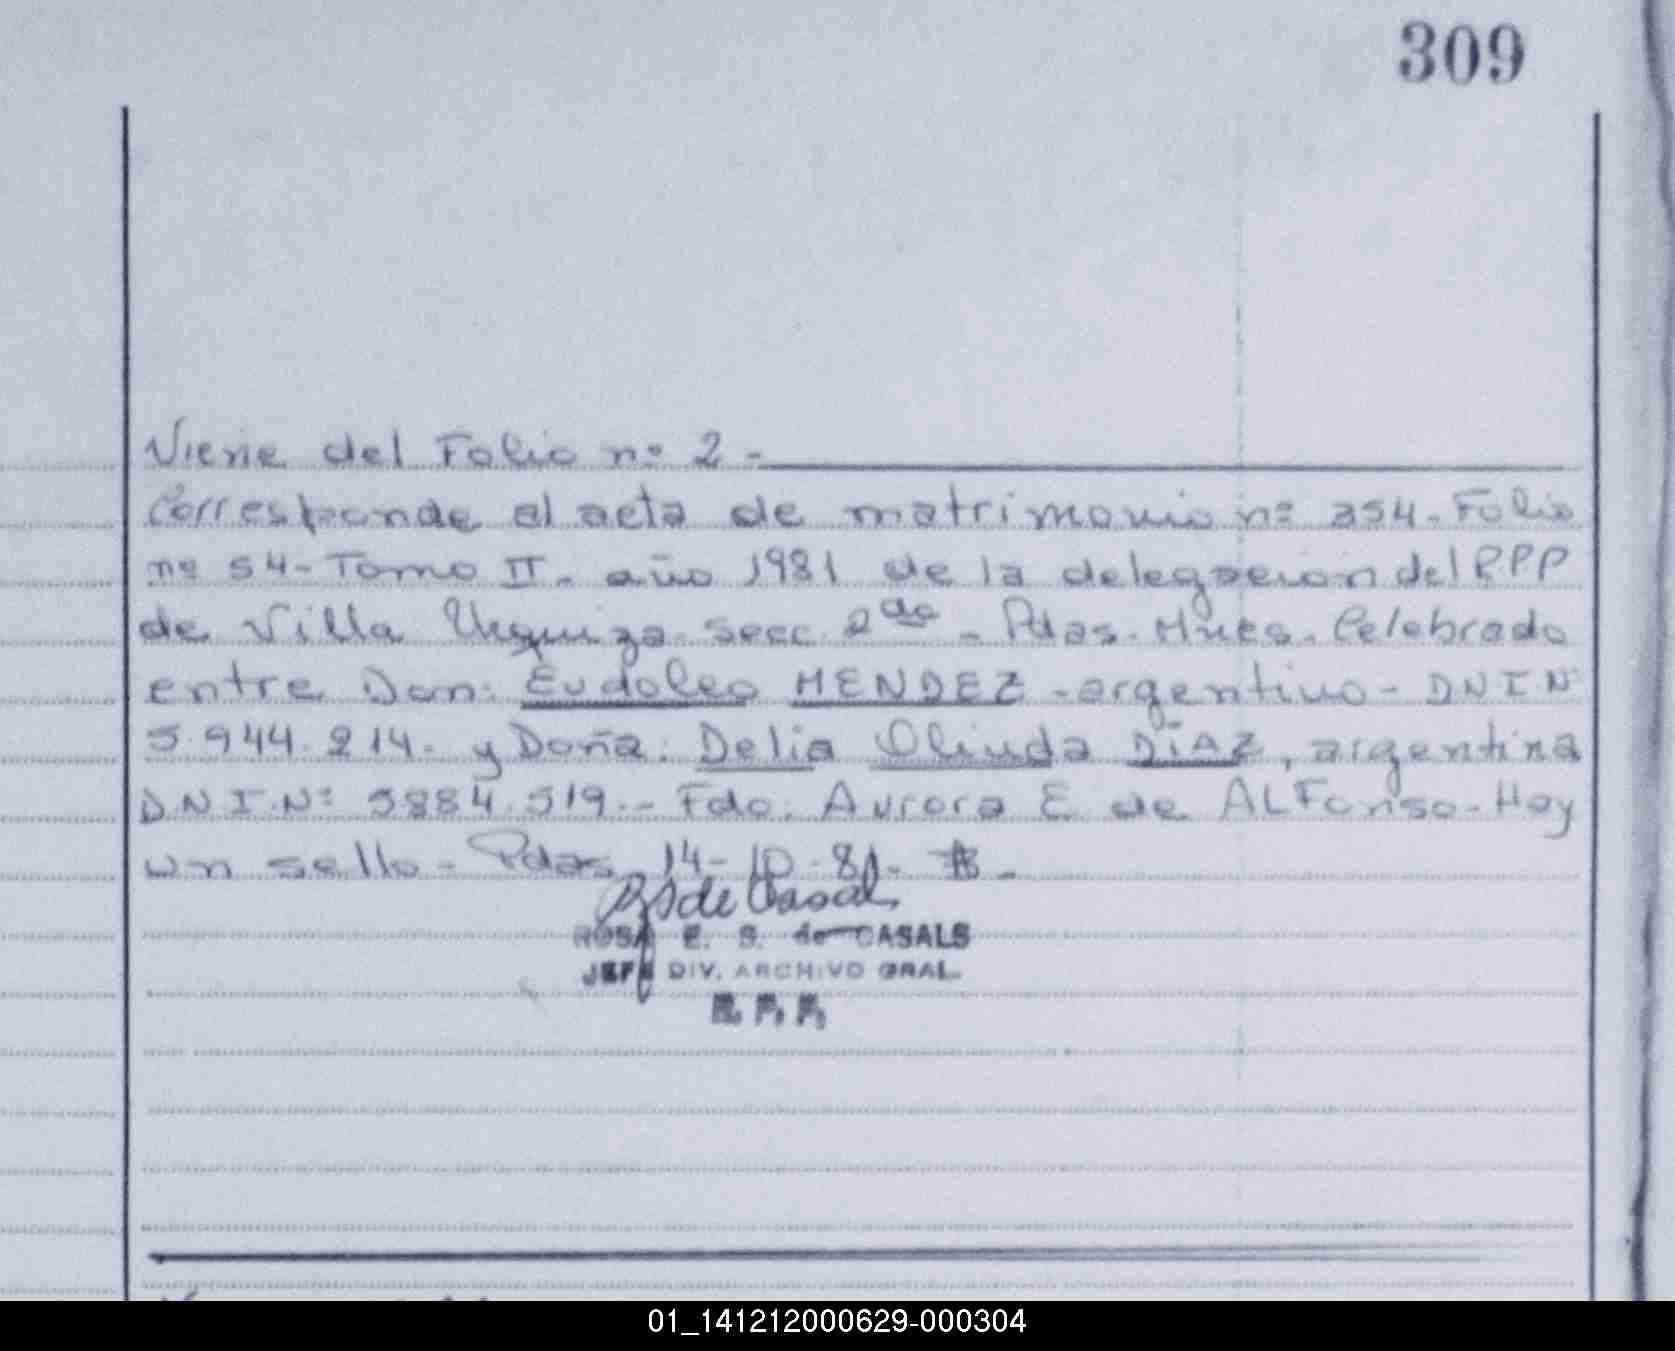 309
Viene del Folio nº 2 -
Corresponde al acta de matrimonio nº 254 - Folio
nº 54 - Tomo II - año 1981 de la delegación del RPP
de Villa Urquiza secc 2da - Pdas. Mnes. Celebrado
entre Don: Eudoleo MENDEZ - argentino - DNI Nº
5.944.214 - y Doña: Delia Olinda DíAZ, argentina
DNI. Nº 5884.519 -- Fdo: Aurora E de ALFonso - Hay
un sello - Pdas, 14-10-81-
RSde Casals
ROSA E. S. de CASALS
JEFE DIV. ARCHIVO GRAL.
R. P. P.
01_141212000629-000304